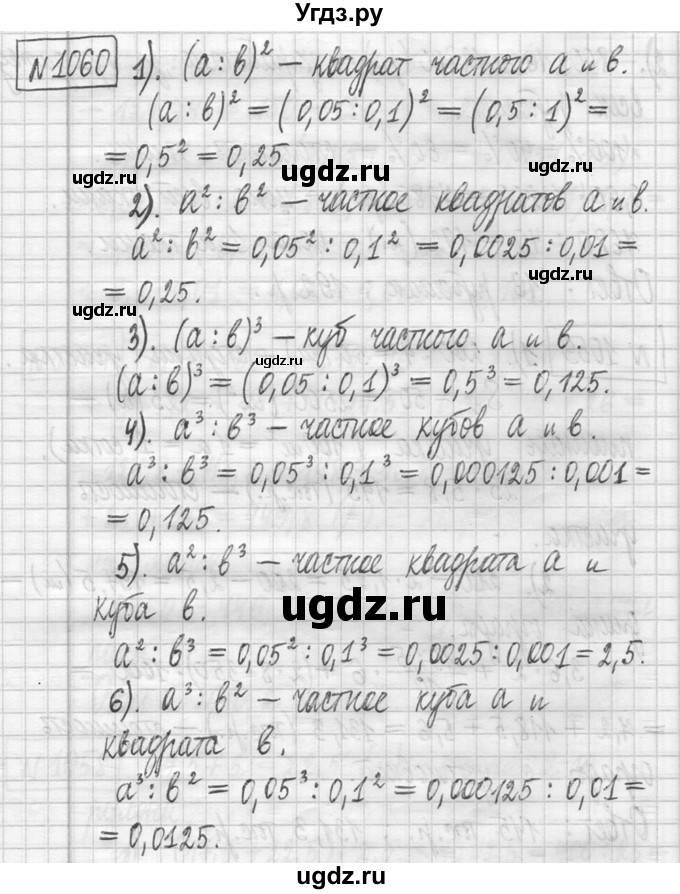 Угдз.ру
№1060 1). (а : в)² – квадрат частного а и в.
(а : в)² = (0,05 : 0,1)² = (0,5 : 1)² =
= 0,5² = 0,25
ugdz.ru ugdz.ru ugdz.ru
2). а² : в² – частное квадратов а и в.
а² : в² = 0,05² : 0,1² = 0,0025 : 0,01 =
ugdz.ru
= 0,25.
ugdz.ru
3). (а : в)³ – куб частного а и в.
ugdz.ru
(а : в)³ = (0,05 : 0,1)³ = 0,5³ = 0,125.
4). а³ : в³ – частное кубов а и в.
а³ : в³ = 0,05³ : 0,1³ = 0,000125 : 0,001 =
= 0,125.
5). а² : в³ – частное квадрата а и
куба в.
ugdz.ru
а² : в³ = 0,05² : 0,1³ = 0,0025 : 0,001 = 2,5.
6). а³ : в² – частное куба а и
квадрата в.
а³ : в² = 0,05³ : 0,1² = 0,000125 : 0,01 =
= 0,0125.